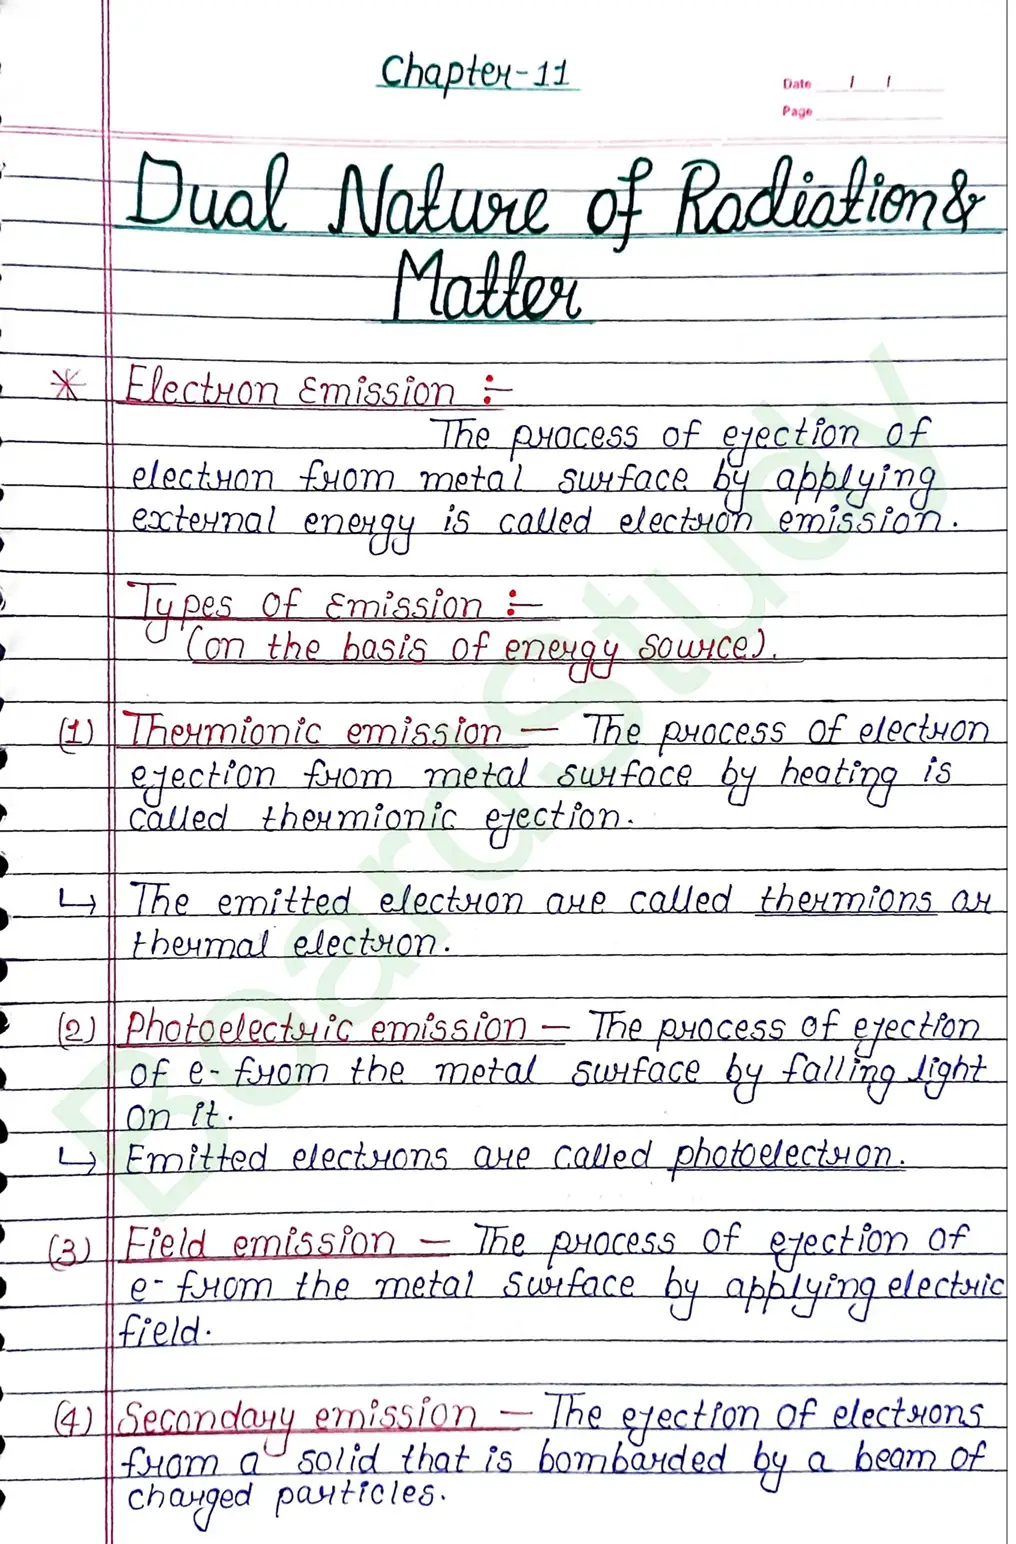 Chapter-11
Date / /
Page
Dual Nature of Radiation &
Matter
* Electron Emission :-
The process of ejection of
electron from metal surface by applying
external energy is called electron emission.
Types of Emission :-
(on the basis of energy source).
(1) Thermionic emission — The process of electron
ejection from metal surface by heating is
called thermionic ejection.
↳ The emitted electron are called thermions or
thermal electron.
(2) Photoelectric emission — The process of ejection
of e- from the metal surface by falling light
on it.
↳ Emitted electrons are called photoelectron.
(3) Field emission — The process of ejection of
e- from the metal surface by applying electric
field.
(4) Secondary emission — The ejection of electrons
from a solid that is bombarded by a beam of
charged particles.
BoardStudy